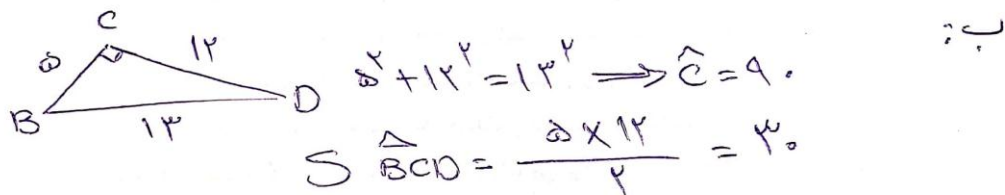 ب:
C
۵ ۱۲
B ۱۳ D
۵^۲ + ۱۲^۲ = ۱۳^۲ ⟹ Ĉ = ۹۰
S BĈD = ۵ × ۱۲ / ۲ = ۳۰